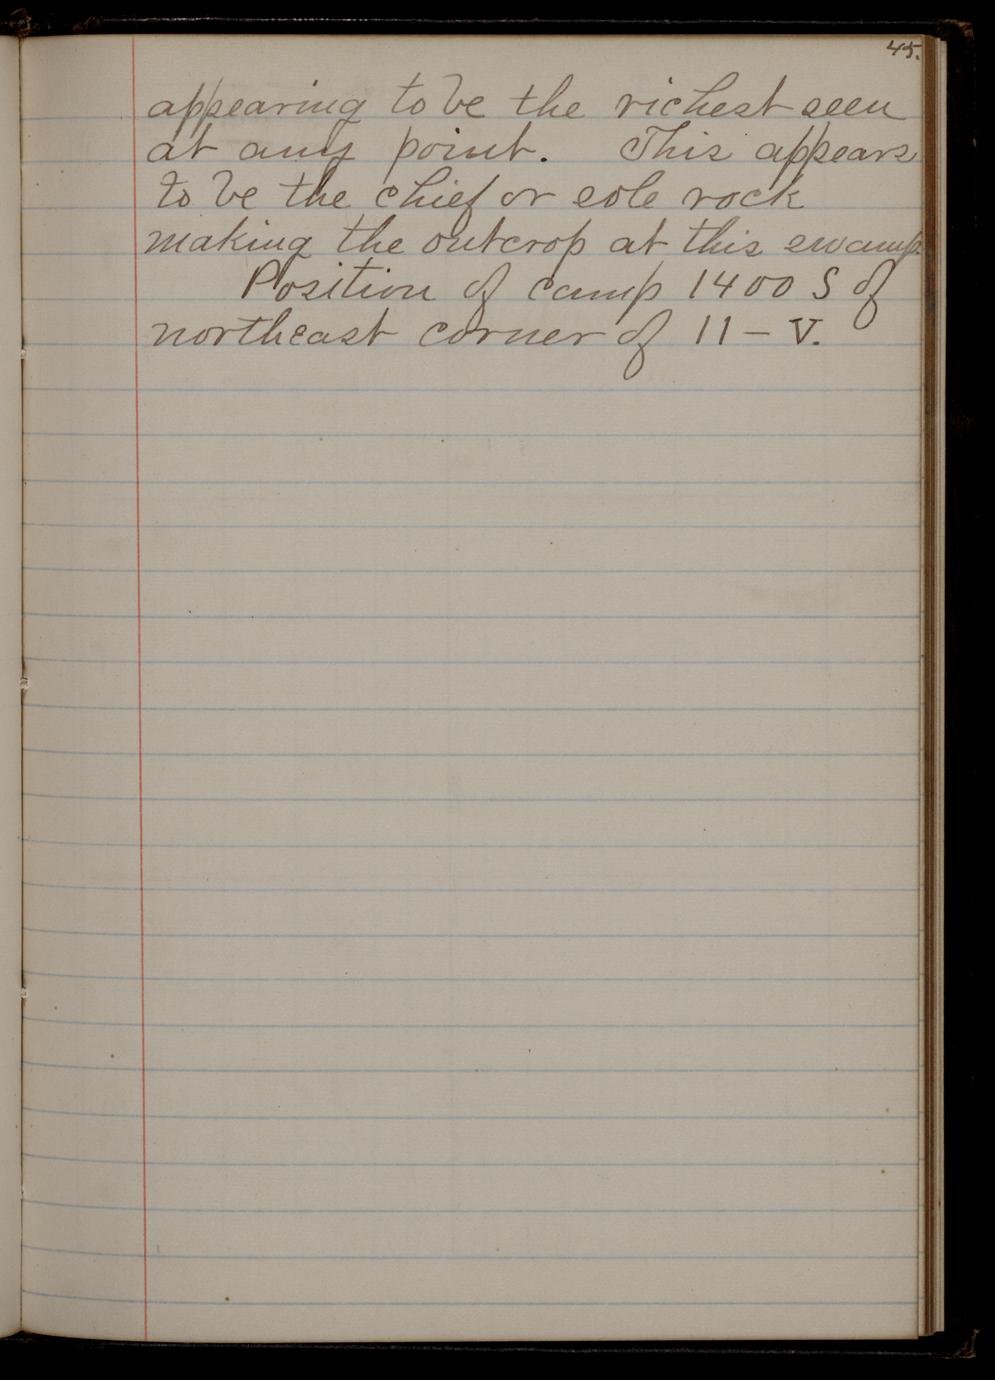 45.
appearing to be the richest seen
at any point. This appears
to be the chief or sole rock
making the outcrop at this swamp.
Position of camp 1400 S of
northeast corner of 11 – V.